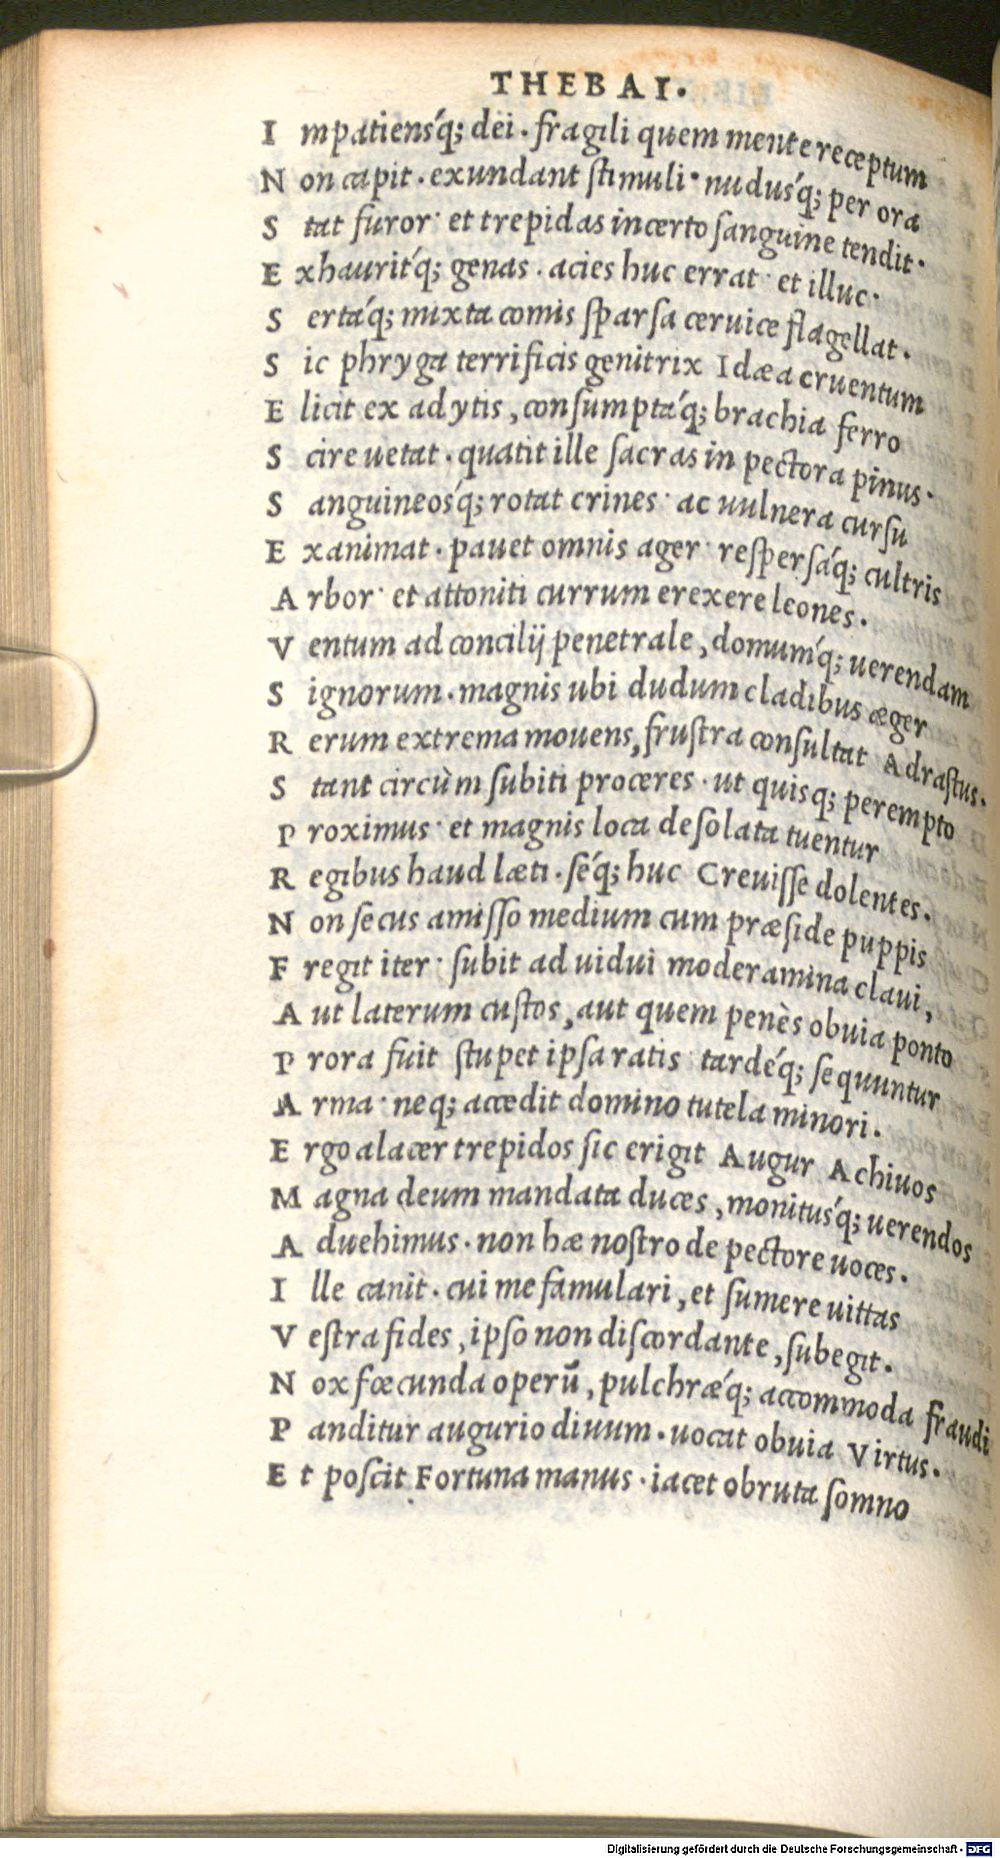 THEBAI.
I mpatiensq́; dei. fragili quem mente receptum
N on capit. exundant stimuli· nudusq́; per ora
S tat furor· et trepidas incerto sanguine tendit.
E xhauritq́; genas. acies huc errat· et illuc·
S ertaq́; mixta comis sparsa ceruice flagellat.
S ic phryga terrificis genitrix Idæa cruentum
E licit ex adytis, consumptaq́; brachia ferro
S cire uetat. quatit ille sacras in pectora pinus·
S anguineosq́; rotat crines· ac uulnera cursu
E xanimat. pauet omnis ager· respersaq́; cultris
A rbor· et attoniti currum erexere leones.
V entum ad concilij penetrale, domumq́; uerendam
S ignorum. magnis ubi dudum cladibus æger
R erum extrema mouens, frustra consultat Adrastus.
S tant circùm subiti proceres. ut quisq; perempto
P roximus· et magnis loca desolata tuentur
R egibus haud læti. séq́; huc Creuisse dolentes.
N on secus amisso medium cum præside puppis
F regit iter· subit ad uidui moderamina claui,
A ut laterum custos, aut quem penès obuia ponto
P rora fuit stupet ipsa ratis· tardéq́; sequuntur
A rma· neq; accedit domino tutela minori.
E rgo alacer trepidos sic erigit Augur Achiuos
M agna deum mandata duces, monitusq́; uerendos
A duehimus. non hæ nostro de pectore uoces.
I lle canit. cui me famulari, et sumere uittas
V estra fides, ipso non discordante, subegit.
N ox fœcunda operū, pulchræq́; accommoda fraudi
P anditur augurio diuum. uocat obuia Virtus.
E t poscit Fortuna manus· iacet obruta somno
Digitalisierung gefördert durch die Deutsche Forschungsgemeinschaft - DFG